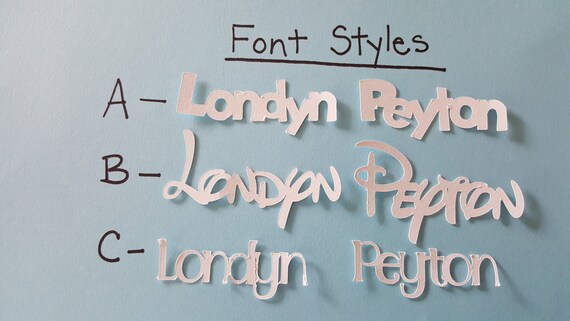 Font Styles
A - Londyn Peyton
B - Londyn Peyton
C - Londyn Peyton